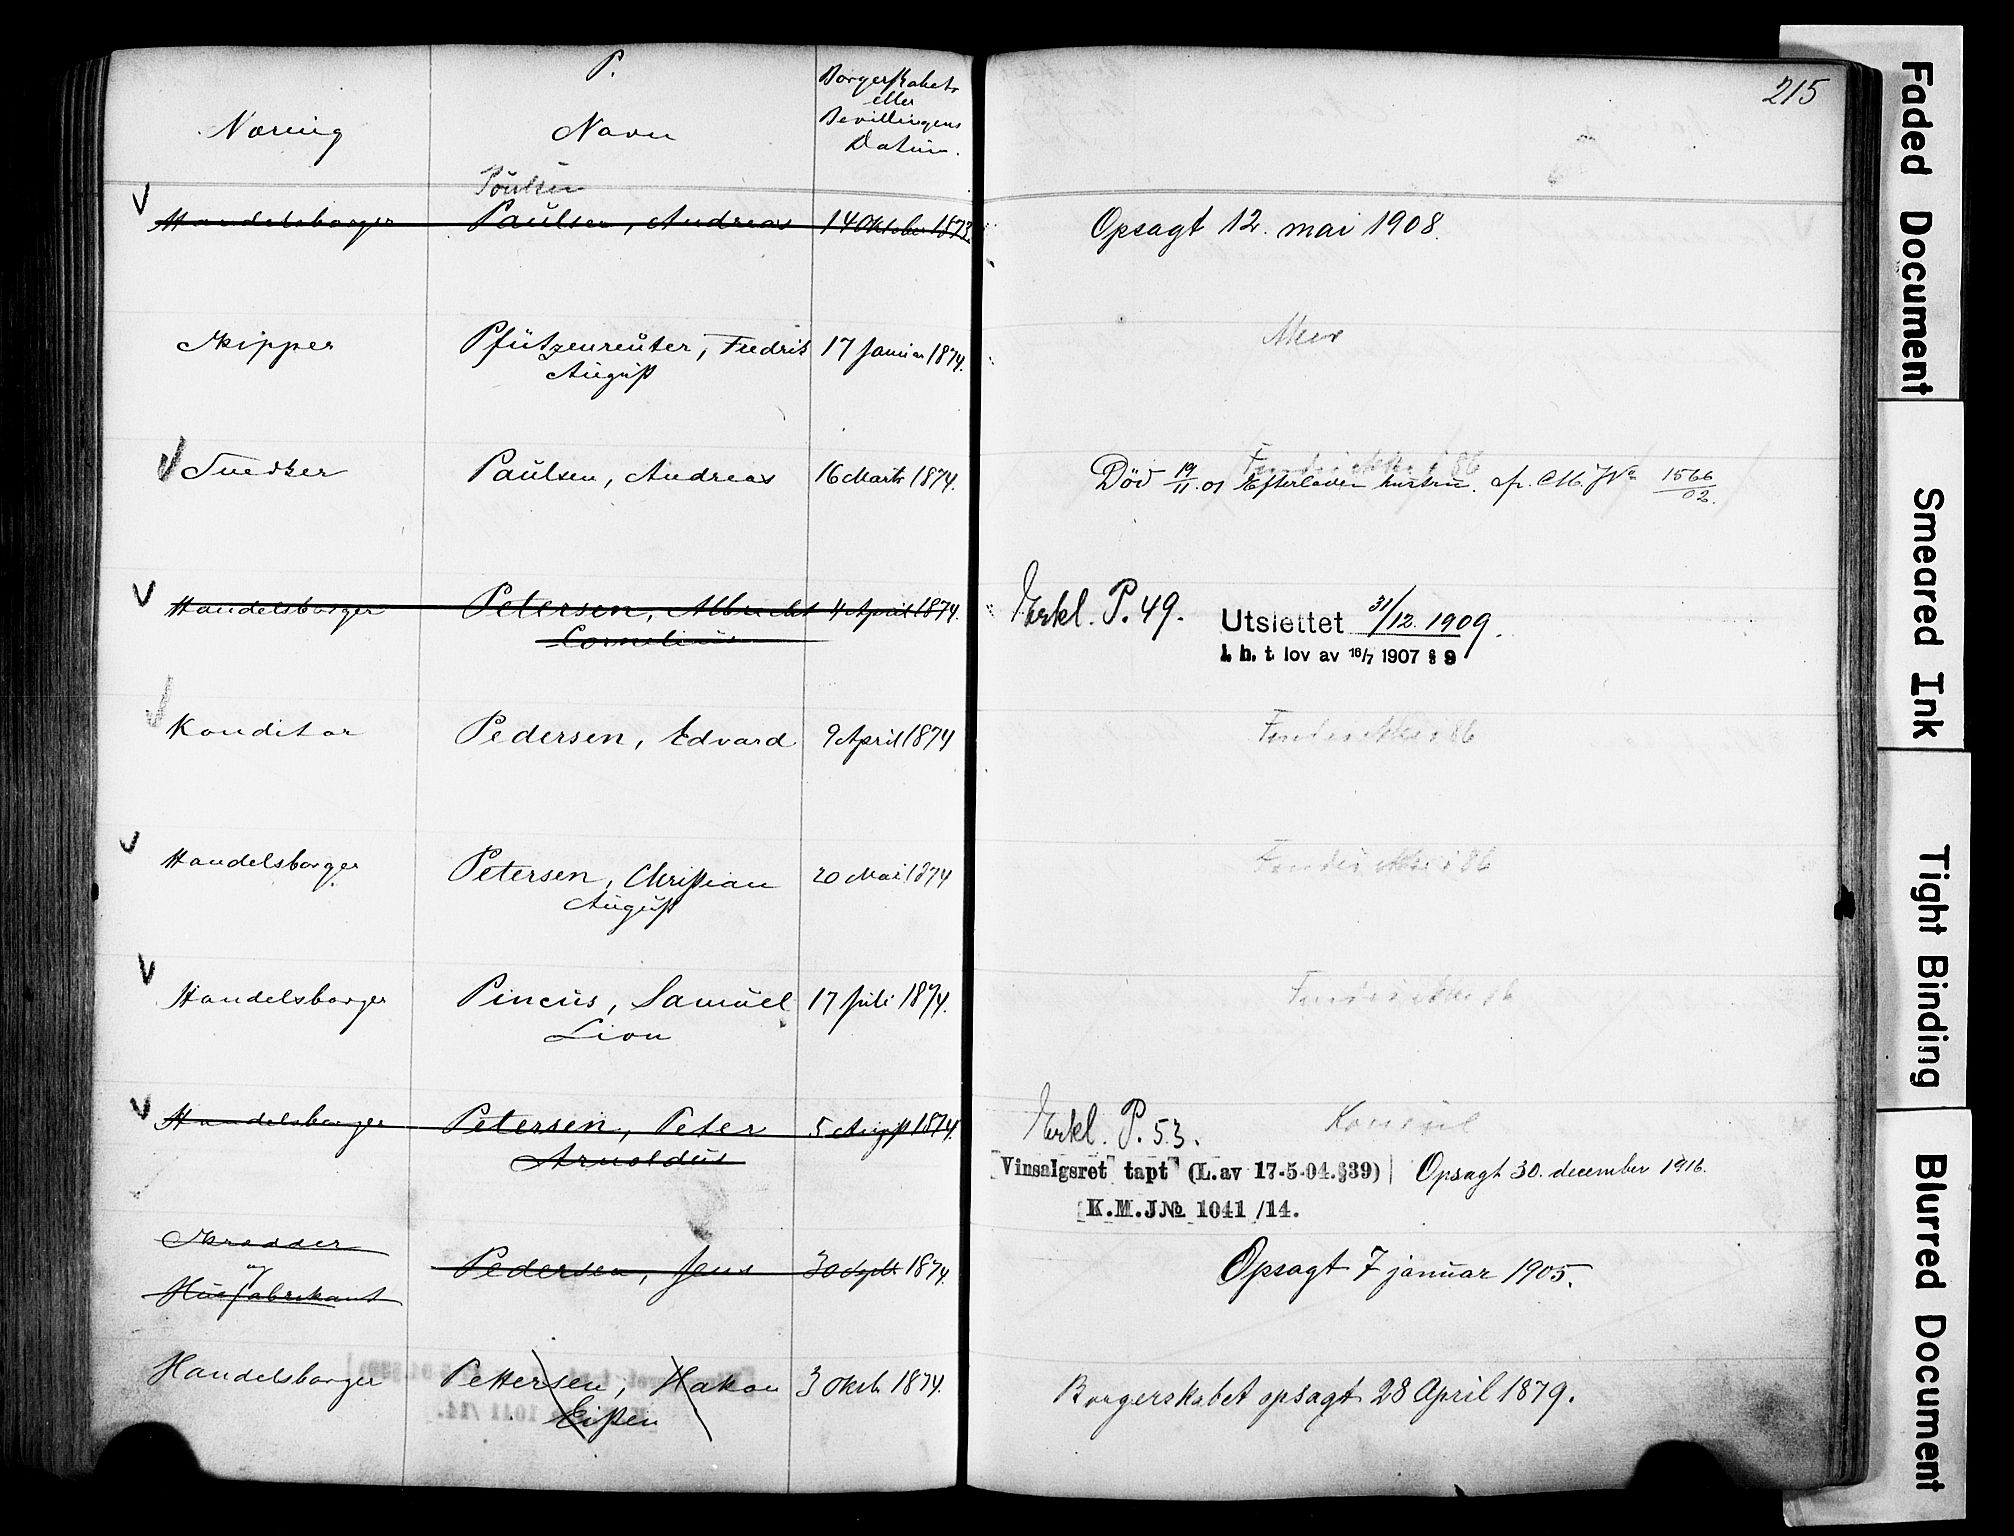 P.
215
Næring
Navn
Borgerskabets
eller
Bevillingens
Datum.
Poulsen
Handelsborger Paulsen, Andreas 14 Oktober 1873. Opsagt 12. mai 1908.
Skipper Pfützenreuter, Fredrik 17 Januar 1874.
August
Snedker Paulsen, Andreas 16 Marts 1874. Død 19/11.01 Efterlader hustru. cfr. M. J No 1566/02.
Handelsborger Petersen, Albrecht 4 April 1874. Erkl. P. 49. Utslettet 31/12. 1909.
Cornelius
i. h. t. lov av 16/7 1907 § 9
Konditor Pedersen, Edvard 9 April 1874
Handelsborger Petersen, Christian 20 Mai 1874
August
Handelsborger Pincus, Samuel 17 Juli 1874.
Lion
Handelsborger Petersen, Peter 5 August 1874. Erkl. P. 53. Konsul
Arnoldus
Vinsalgsret tapt (L.av 17-5-04.§39) Opsagt 30. december 1916.
K.M.J№ 1041/14.
Skrædder
og
Huefabrikant
Pedersen, Jens 30 Septbr 1874. Opsagt 7 januar 1905.
Handelsborger Pettersen, Hakon 3 Oktb. 1874. Borgerskabet opsagt 28 April 1879.
Eißen
Faded Document
Smeared Ink
Tight Binding
Blurred Document